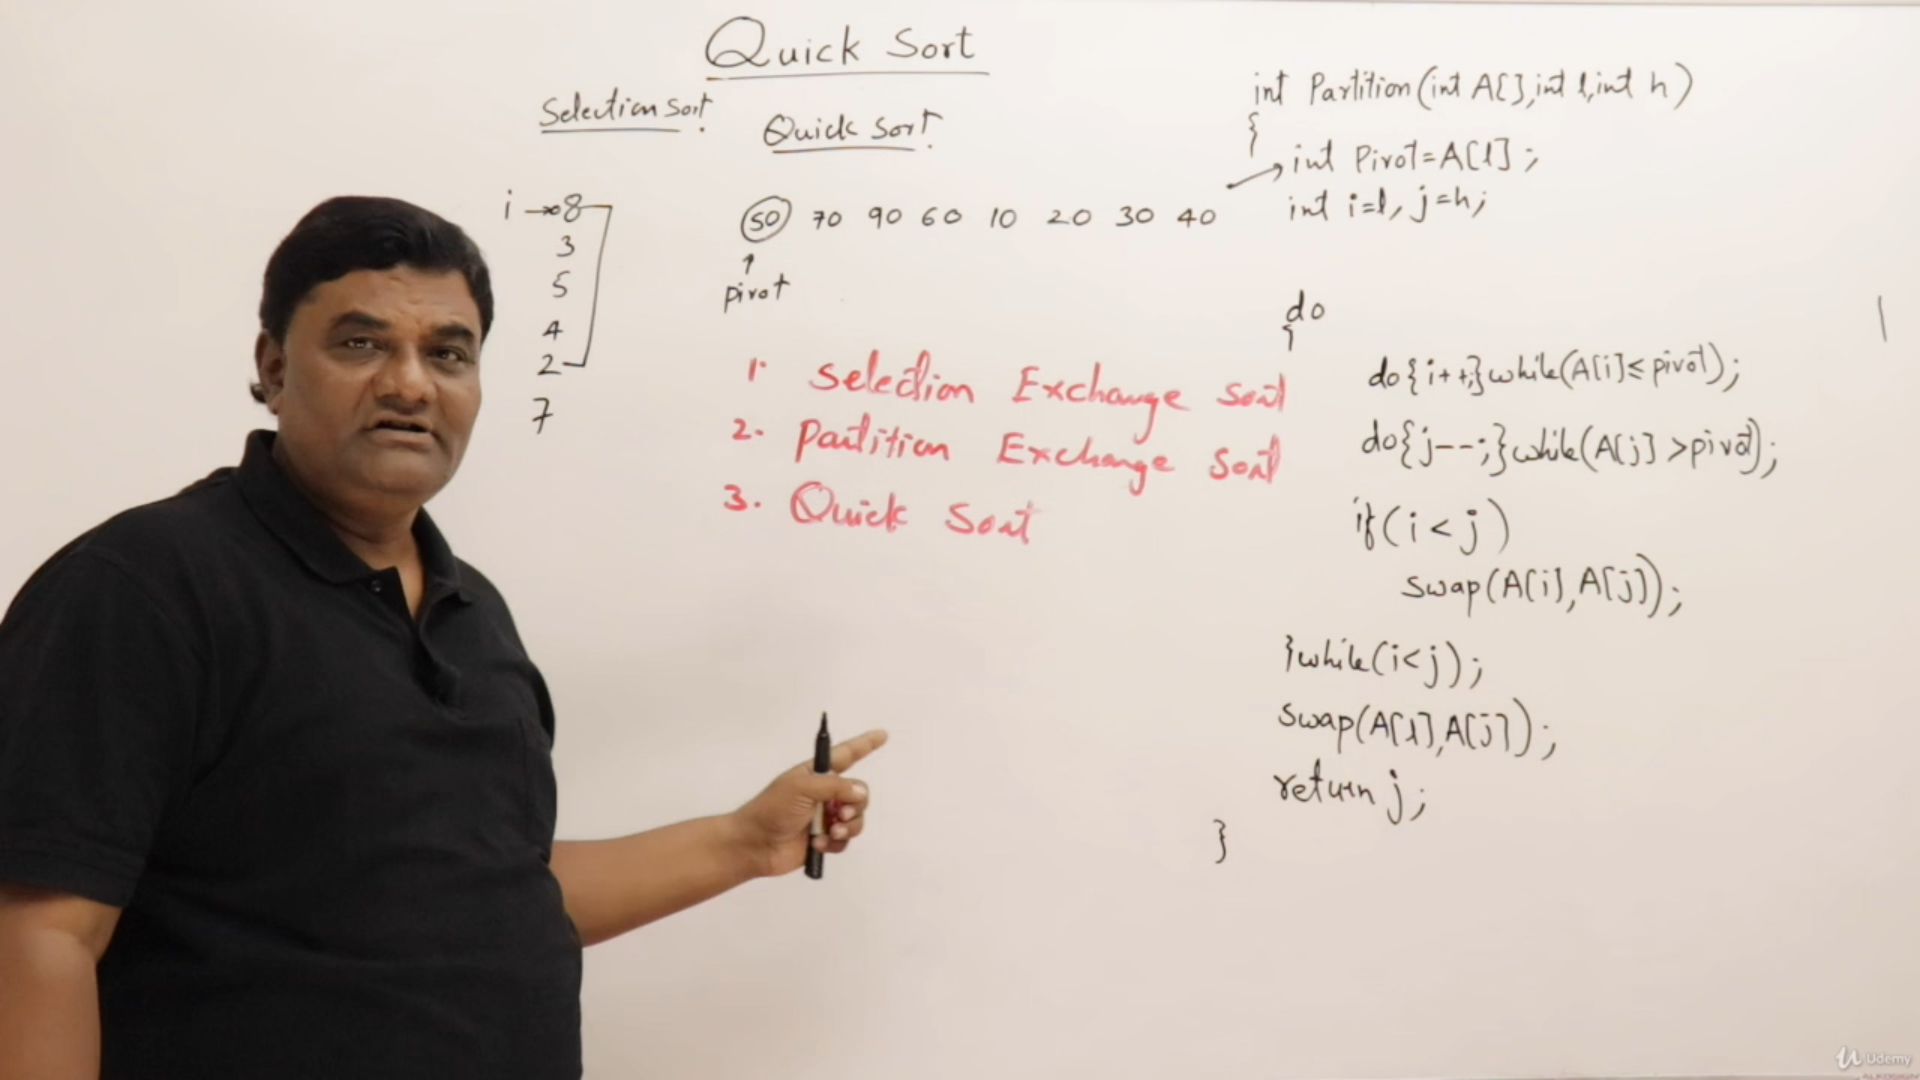 Quick Sort
Selection Sort.
Quick Sort.
i → 8
3
5
4
2
7
50 70 90 60 10 20 30 40
↑
pivot
1. Selection Exchange Sort
2. Partition Exchange Sort
3. Quick Sort
int Partition(int A[],int l,int h)
{
int Pivot=A[l];
int i=l, j=h;
do
{
do{i++;}while(A[i]≤pivot);
do{j--;}while(A[j]>pivot);
if(i<j)
swap(A[i],A[j]);
}while(i<j);
swap(A[l],A[j]);
return j;
}
Udemy